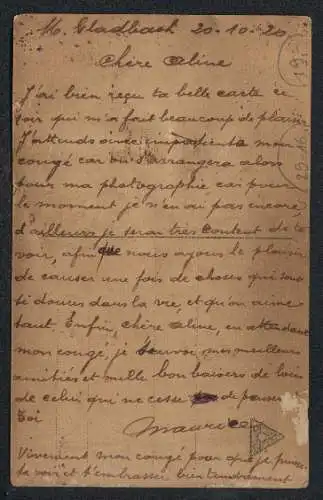 M. Gladbach 20-10-20
Chère Aline
J'ai bien reçu ta belle carte ce
soir qui m'a fait beaucoup de plaisir
J'attends avec impatience mon
congé car on s'arrangera alors
pour ma photographie car pour
le moment je n'en ai pas encore,
d'ailleurs je serai très content de te
voir, afin que nous ayons le plaisir
de causer une fois de choses qui sont
si douces dans la vie, et qu'on aime
tant. Enfin, chère Aline, en attendant
mon congé, je t'envoi mes meilleurs
amitiés et mille bon baisers de loin
de celui qui ne cesse de penser
toi
Maurice
Vivement mon congé pour que je puisse
te voir et t'embrasser bien tendrement